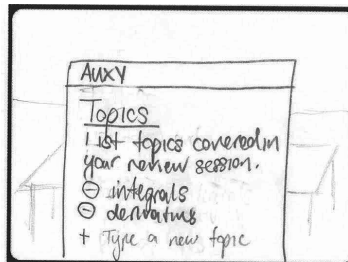 AUXY
Topics
List topics covered in
your review session.
⊖ integrals
⊖ derivatives
+ Type a new topic